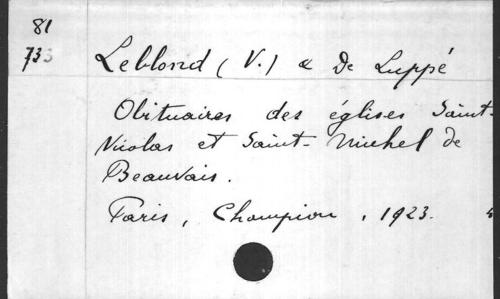 81
733
Leblond (V.) & De Luppé
Obituaires des églises Saint-
Nicolas et Saint-Michel de
Beauvais.
Paris, Champion, 1923.